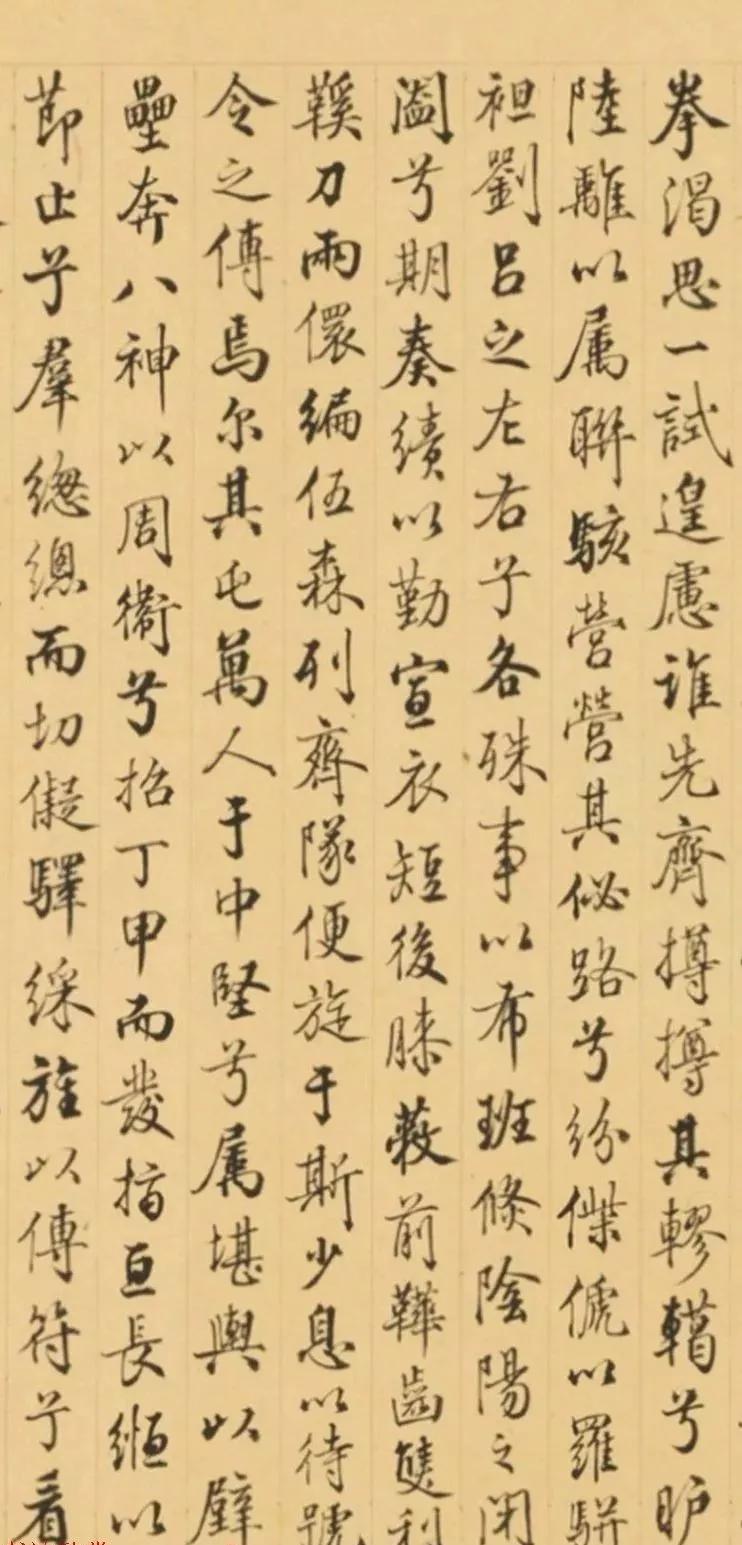 拳渴思一試遑慮誰先齊撙撙其轇轕兮
陸離以属聯駭營營其佖路兮紛傑俿以羅駢
袒劉吕之左右兮各殊事以布班條陰陽之闭
闔兮期奏績以勤宣衣短後膝蔽前鞾齒雙利
鞵刀兩儇編伍森列齊隊便旋于斯少息以待號
令之傳焉尔其屯萬人于中堅兮属堪輿以壁
壘奔八神以周衞兮招丁甲而發指亘長絙以
節止兮羣緫緫而切儗驛綵旌以傳符兮看